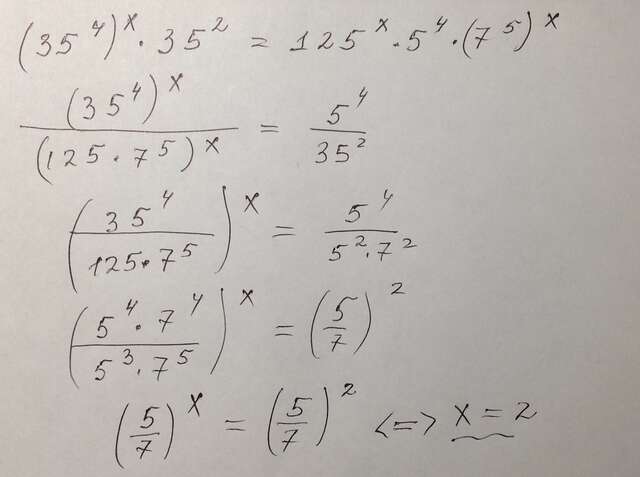 (35^4)^x · 35^2 = 125^x · 5^4 · (7^5)^x
(35^4)^x / (125 · 7^5)^x = 5^4 / 35^2
(35^4 / 125 · 7^5)^x = 5^4 / 5^2 · 7^2
(5^4 · 7^4 / 5^3 · 7^5)^x = (5/7)^2
(5/7)^x = (5/7)^2 <=> x = 2